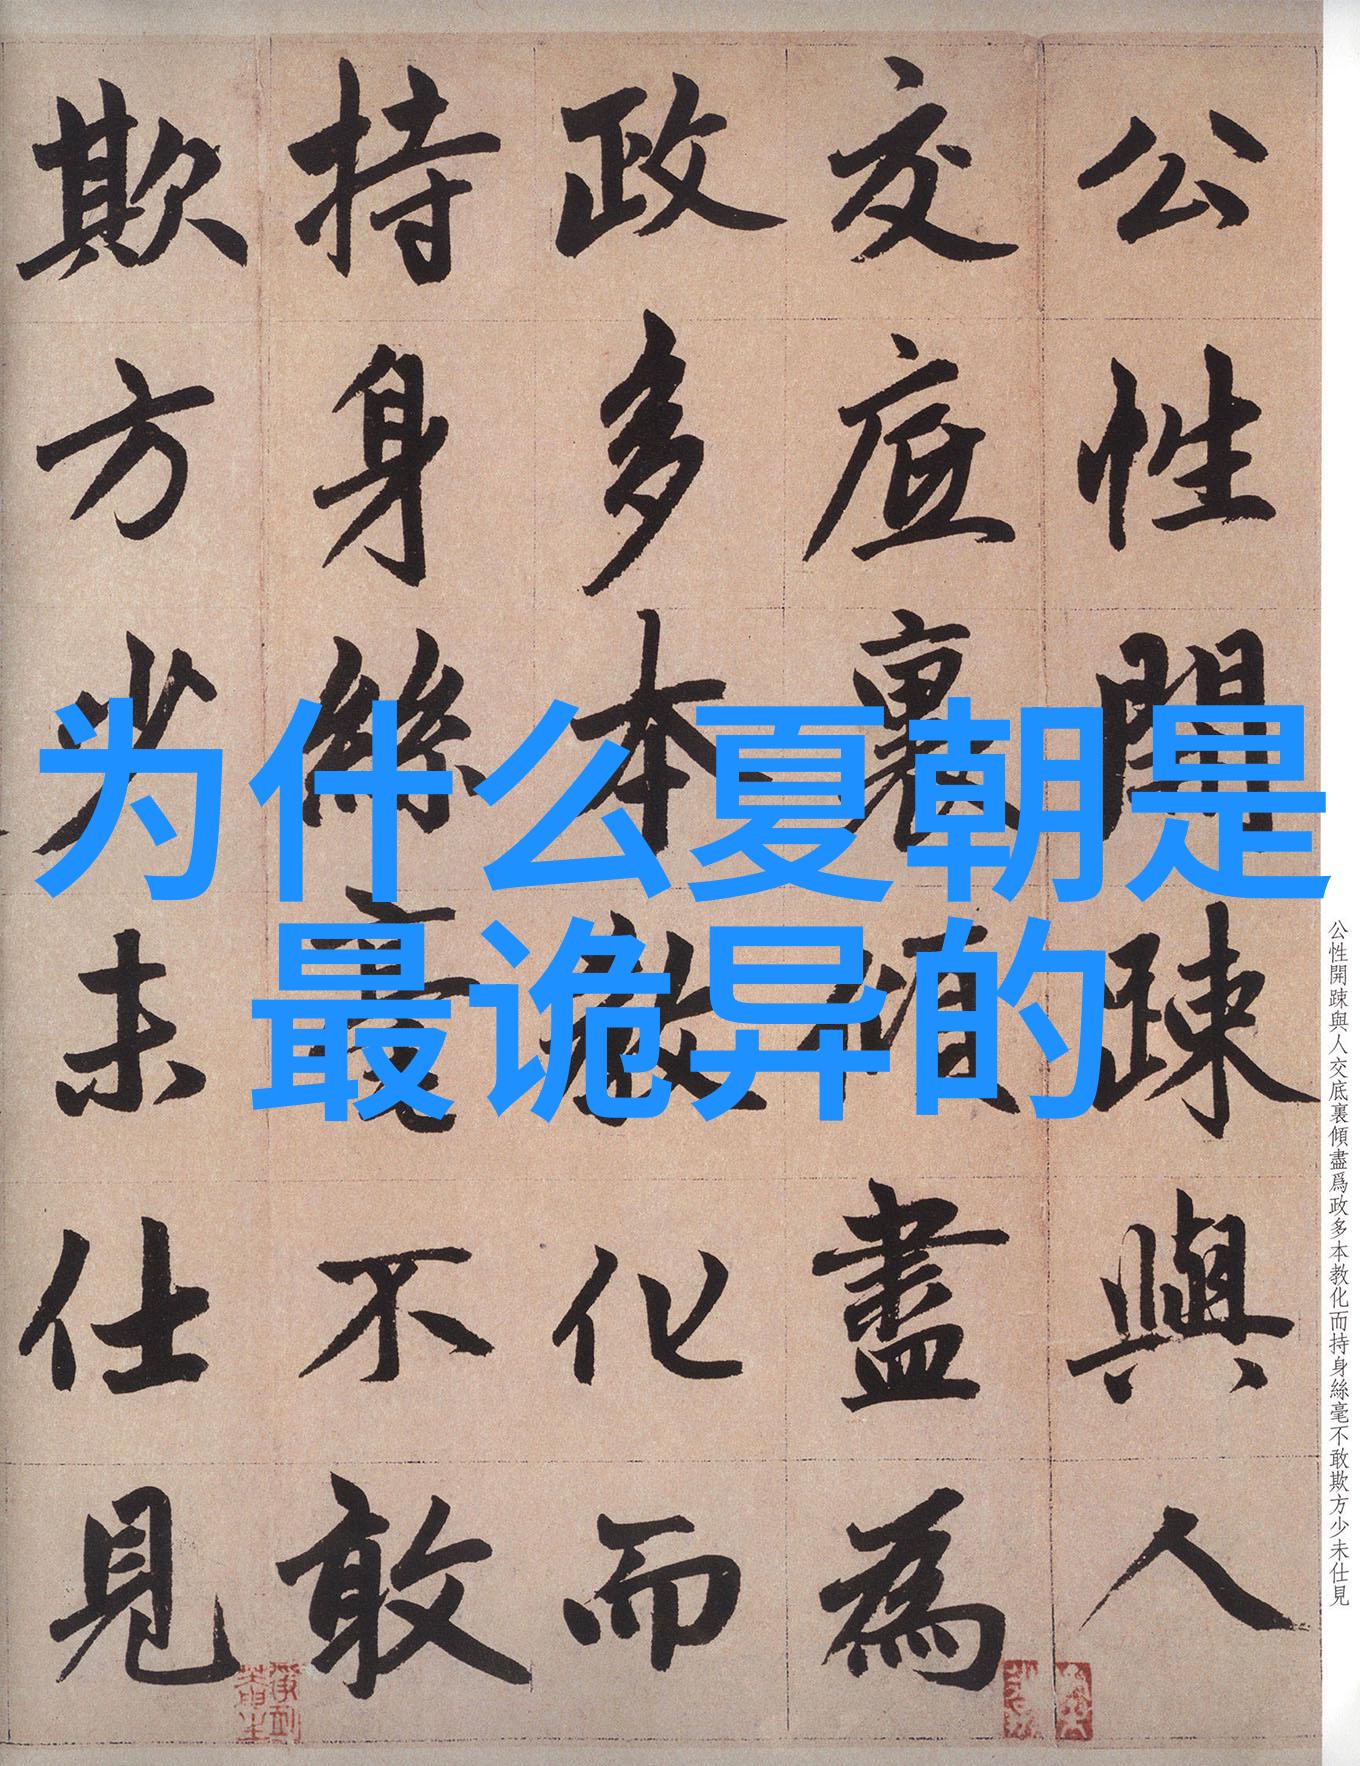 为什么夏朝是
最诡异的
公性開踈與人
交底裏傾盡為
政多本教化而
持身絲毫不敢
欺方少未仕見
公性開踈與人交底裏傾盡爲政多本教化而持身絲毫不敢欺方少未仕見